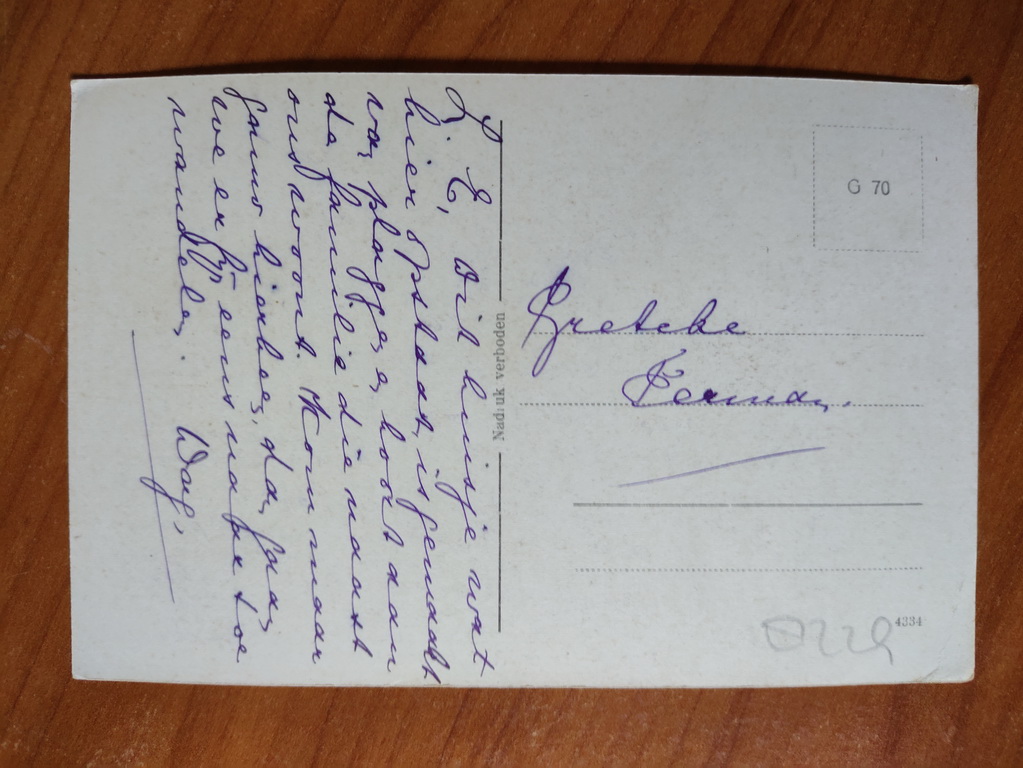 L. E, Dit huisje wat
hier opstaat, is gemaakt
van plaggen, hoort aan
de familie die naast
ons woont. Kom maar
gauw hierheen, dan gaan
we er eens naar toe
wandelen. Dag,
Nadruk verboden
G 70
Gretche
Ferman.
4334